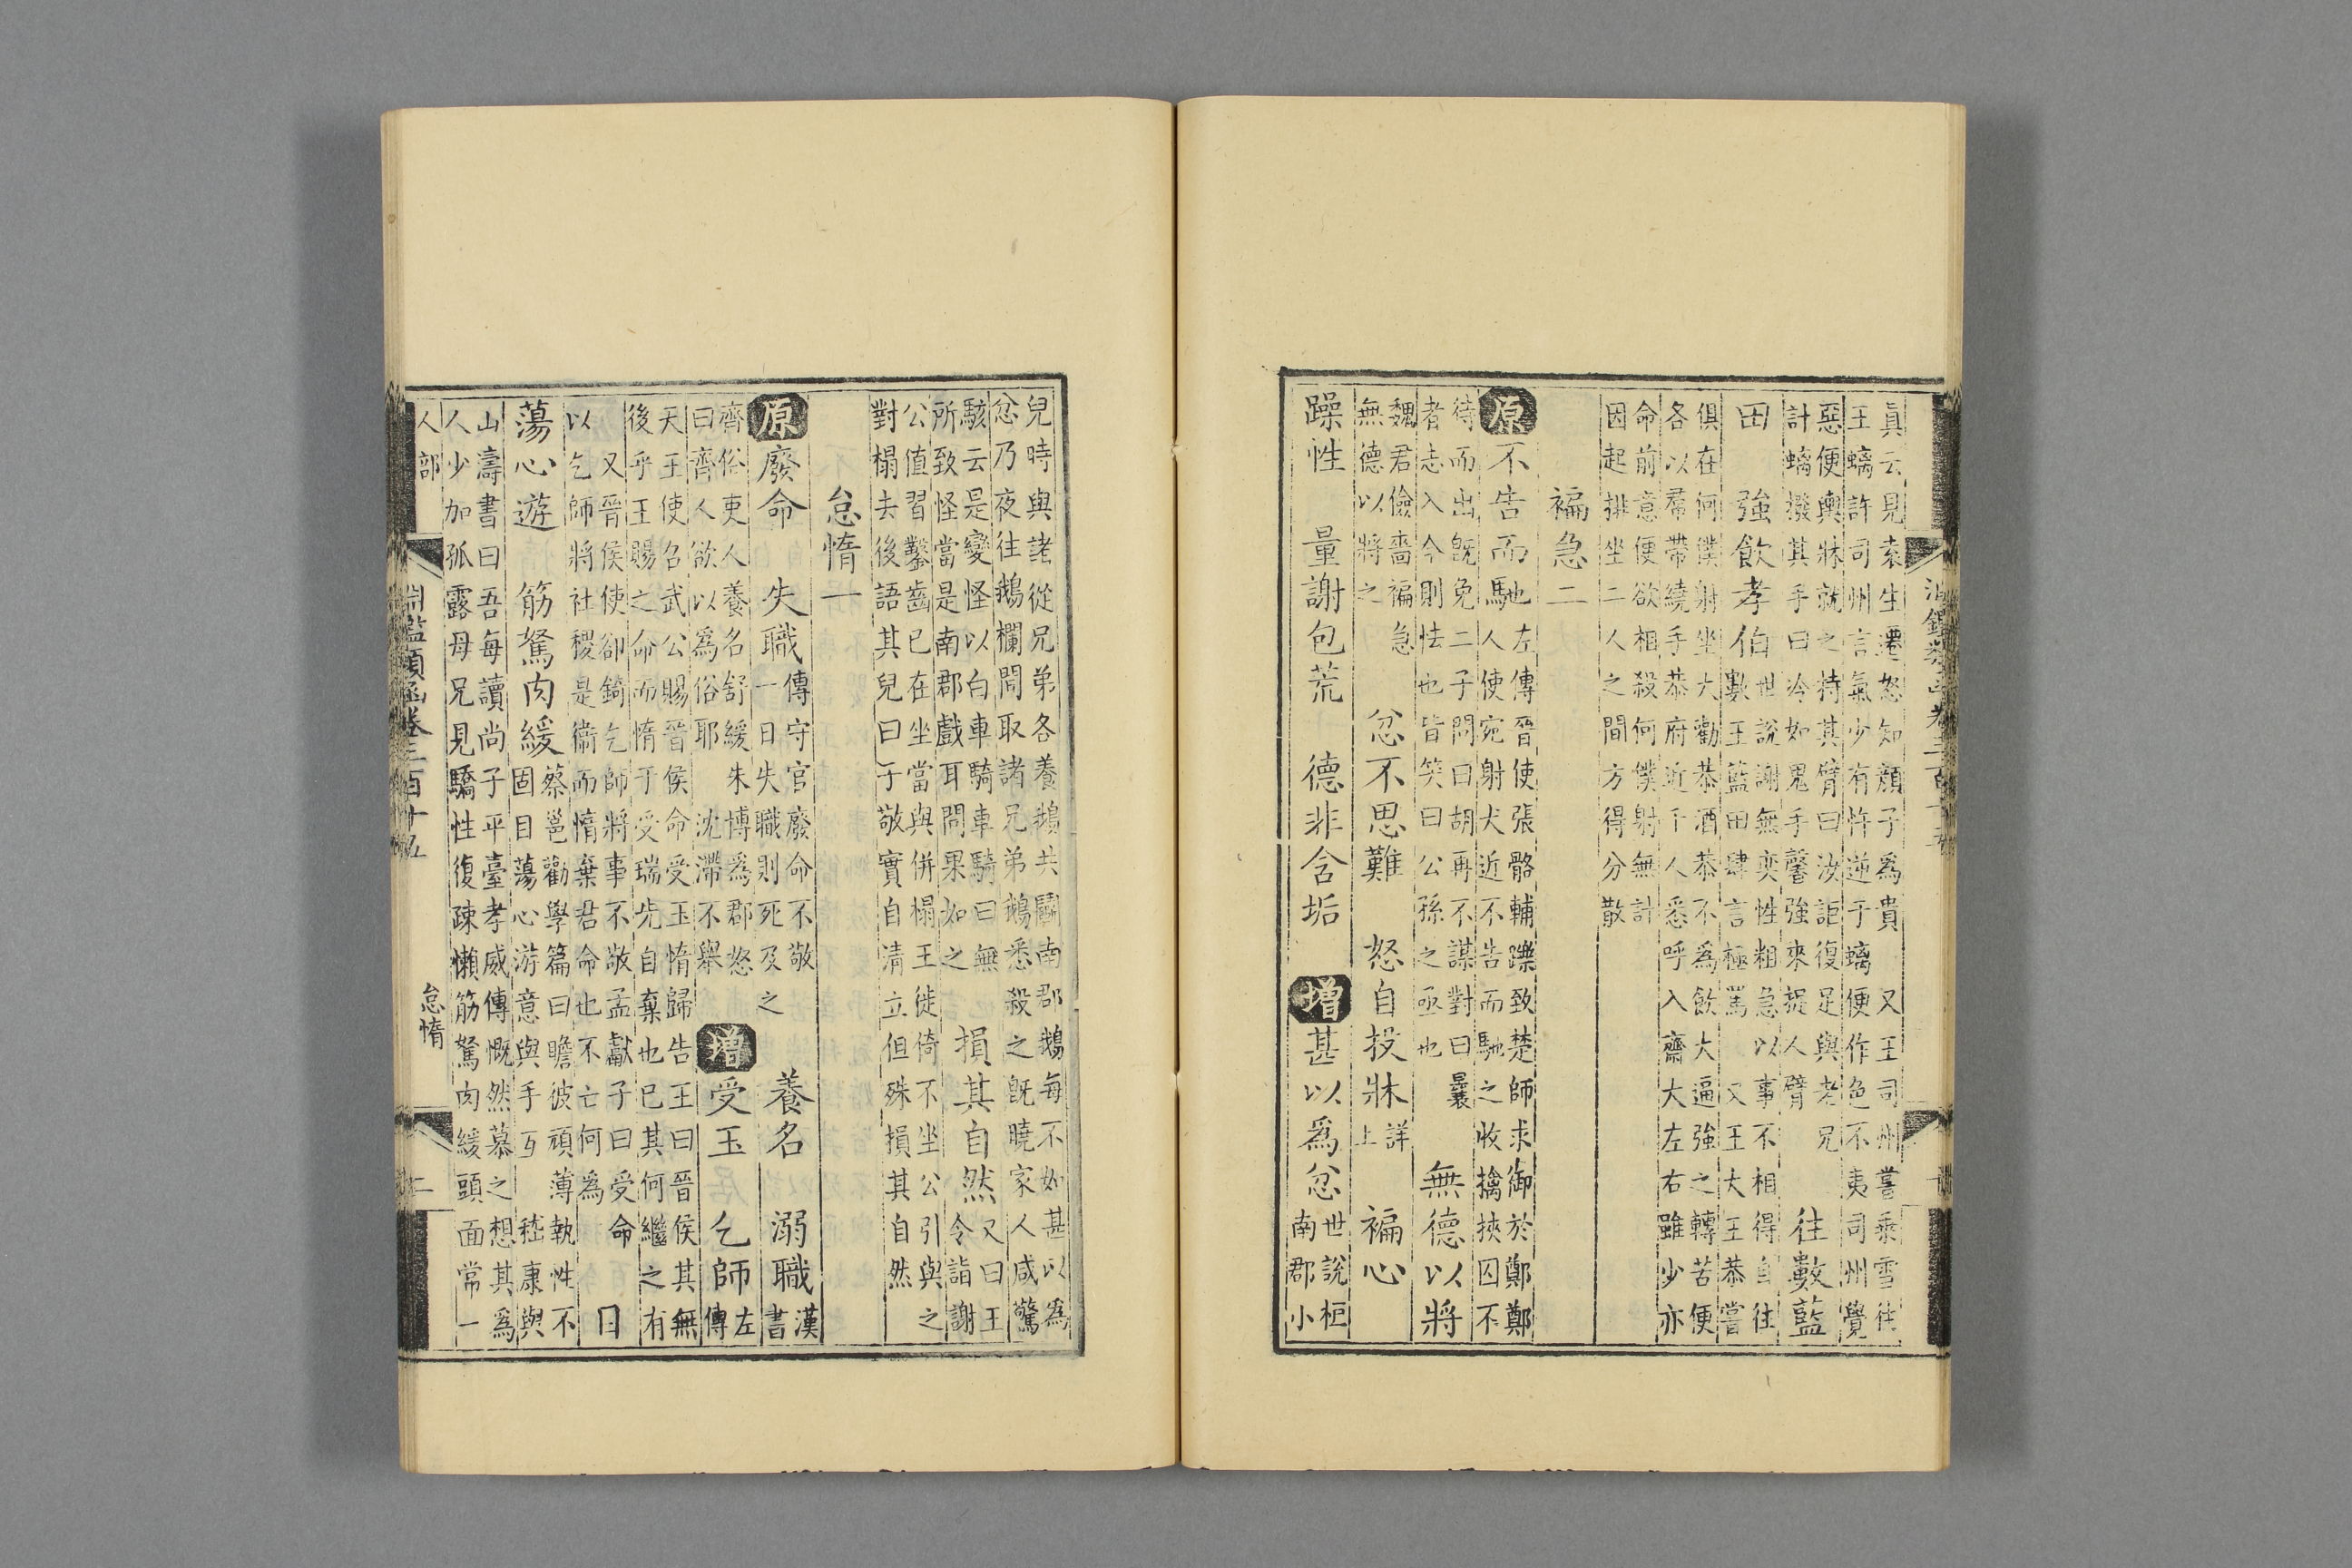 真云見袁生遷怒知顏子為貴 又王司州嘗乘雪往
王螭許司州言氣少有忤逆于螭便作色不夷司州覺
惡便輿牀就之持其臂曰汝詎復足與老兄
計螭撥其手曰冷如鬼手馨強來捉人臂 往數藍
田 強飲孝伯 世說謝無奕性粗急以事不相得自往
數王藍田肆言極罵 又王大王恭嘗
俱在何僕射坐大勸恭酒恭不為飲大逼強之轉苦便
各以羣帶繞手恭府近千人悉呼入齋大左右雖少亦
命前意便欲相殺何僕射無計
因起排坐二人之間方得分散
褊急二
原 不告而馳 左傳晉使張骼輔躒致楚師求御於鄭鄭
人使宛射犬近不告而馳之收擒挾囚不
待而出既免二子問曰胡再不謀對曰曩
者志入今則怯也皆笑曰公孫之亟也 無德以將
魏君儉嗇褊急
無德以將之 忿不思難 怒自投牀 詳上 褊心
躁性 量謝包荒 德非含垢 增 甚以為忿 世說桓
南郡小
兒時與諸從兄弟各養鵝共鬭南郡鵝每不如甚以為
忿乃夜往鵝欄間取諸兄弟鵝悉殺之既曉家人咸驚
駭云是變怪以白車騎車騎曰無
所致怪當是南郡戲耳問果如之 損其自然 又曰王
令詣謝
公值習鑿齒已在坐當與併榻王徙倚不坐公引與之
對榻去後語其兒曰子敬實自清立但殊損其自然
怠惰一
原 廢命 失職 傳守官廢命不敬
一日失職則死及之 養名 溺職 漢書
齊俗吏人養名舒緩朱博為郡怒
曰齊人欲以為俗耶 沈滯不舉 增 受玉 乞師 左傳
天王使召武公賜晉侯命受玉惰歸告王曰晉侯其無
後乎王賜之命而惰于受瑞先自棄也已其何繼之有
又晉侯使卻錡乞師將事不敬孟獻子曰受命
以乞師將社稷是衛而惰棄君命也不亡何為 日
蕩心遊 筋駑肉緩 蔡邕勸學篇曰瞻彼頑薄執性不
固目蕩心游意與手互 嵇康與
山濤書曰吾每讀尚子平臺孝威傳慨然慕之想其為
人少加孤露母兄見驕性復疎懶筋駑肉緩頭面常一
人部 淵鑑類函卷三百十五 怠惰 二